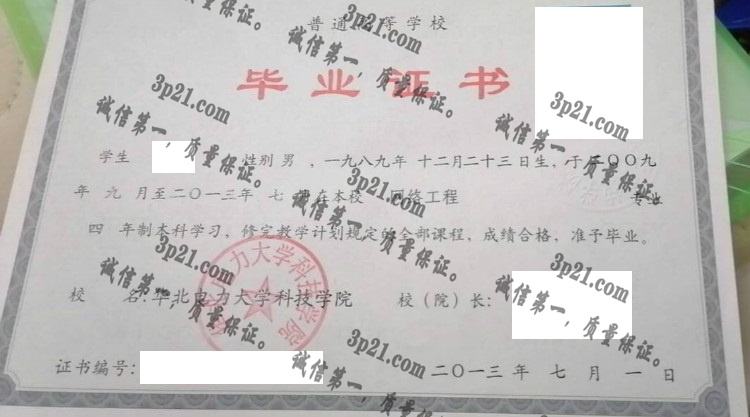 普通高等学校
毕业证书
学生 性别 男 、一九八九年 十二月二十三日生，于二〇〇九
年 九 月至二〇一三年 七 在本校 网络工程 专业
四 年制本科学习，修完教学计划规定的全部课程，成绩合格，准予毕业。
校 名:华北电力大学科技学院 校（院）长:
证书编号: 二〇一三年 七 月 一 日
华北电力大学科技学院
3p21.com
诚信第一，质量保证。
3p21.com
诚信第一，质量保证。
3p21.com
诚信第一，质量保证。
3p21.com
诚信第一，质量保证。
3p21.com
诚信第一，质量保证。
3p21.com
诚信第一，质量保证。
3p21.com
诚信第一，质量保证。
3p21.com
诚信第一，质量保证。